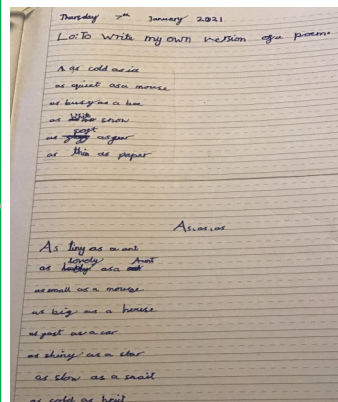 Thursday 7th January 2021
Lo: To write my own version of a poem.
A as cold as ice
as quiet as a mouse
as busy as a bee
as snow
as soft as
as thin as paper
As, as, as
As tiny as a ant
as lovely as a Aunt
as small as a mouse
as big as a house
as fast as a car
as shiny as a star
as slow as a snail
as cold as hail